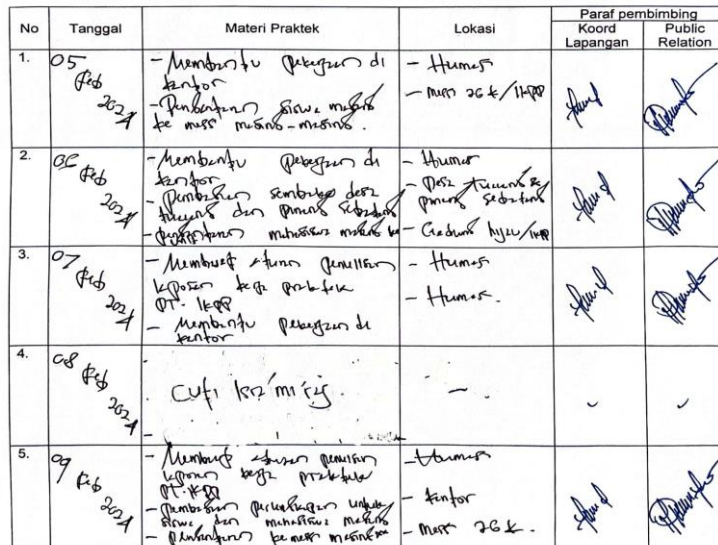 No Tanggal Materi Praktek Lokasi Paraf pembimbing
Koord Lapangan Public Relation
1. 05 Feb 2024
- Membantu pekerjaan di
kantor
- siswa magang
ke mess masing-masing.
- Humas
- mess 26 K/IKPP
2. Feb 2024
- Membantu pekerjaan di
kantor
- Pembagian sembako desa
dan pinang sebatang
- mahasiswa magang ke
- Humas
- Desa &
pinang sebatang
- Gedung hijau/IKPP
3. 07 Feb 2024
- Membuat aturan penulisan
laporan kerja praktek
PT. IKPP
- Membantu pekerjaan di
kantor
- Humas
- Humas.
4. 08 Feb 2024
Cuti Isra' mi'raj
-
5. 09 Feb 2024
- Membuat aturan penulisan
laporan kerja praktek
PT. IKPP
- pembagian perlengkapan untuk
siswa dan mahasiswa magang
- ke mess
- Humas
- kantor
- mess 26 K.